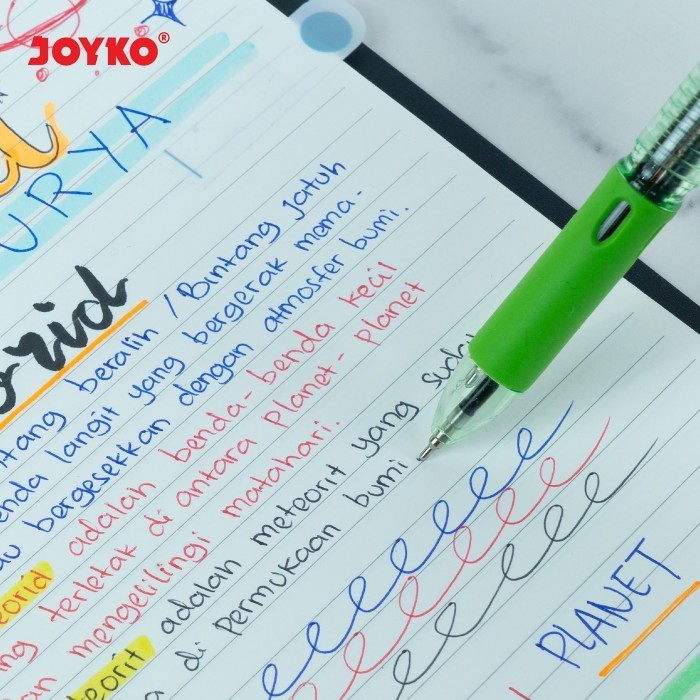 JOYKO®
URYA
orid
ntang beralih / Bintang jatuh
enda langit yang bergerak mema-
au bergesekkan dengan atmosfer bumi.
eorid adalah benda-benda kecil
ng terletak di antara planet-planet
an mengelilingi matahari.
teorit adalah meteorit yang sudah
a di permukaan bumi
PLANET